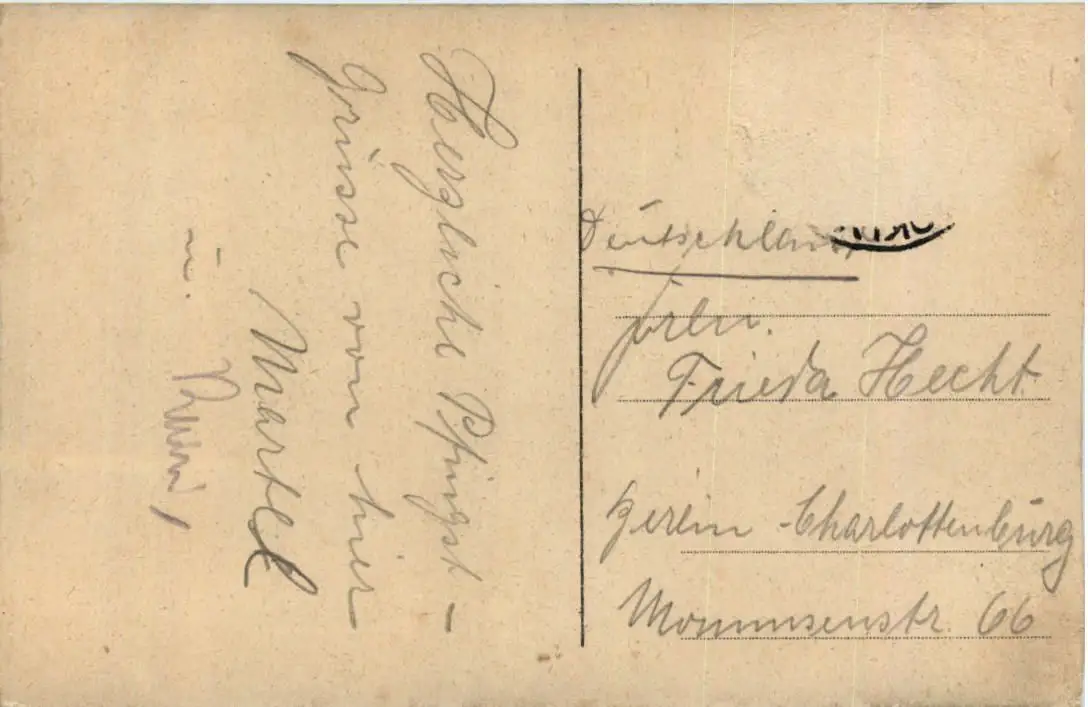 Herzliche Pfingst-
grüsse von hier
Martel
u.
Deutschland
Frln.
Frieda Hecht
Berlin-Charlottenburg
Mommsenstr. 66